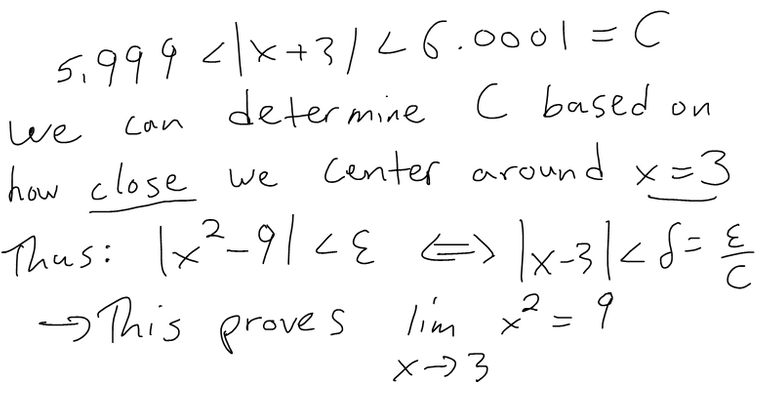 5.999 < |x+3| < 6.0001 = C
We can determine C based on
how close we center around x = 3
Thus: |x²-9| < ε ⟺ |x-3| < δ = ε/C
→ This proves lim x² = 9
x→3